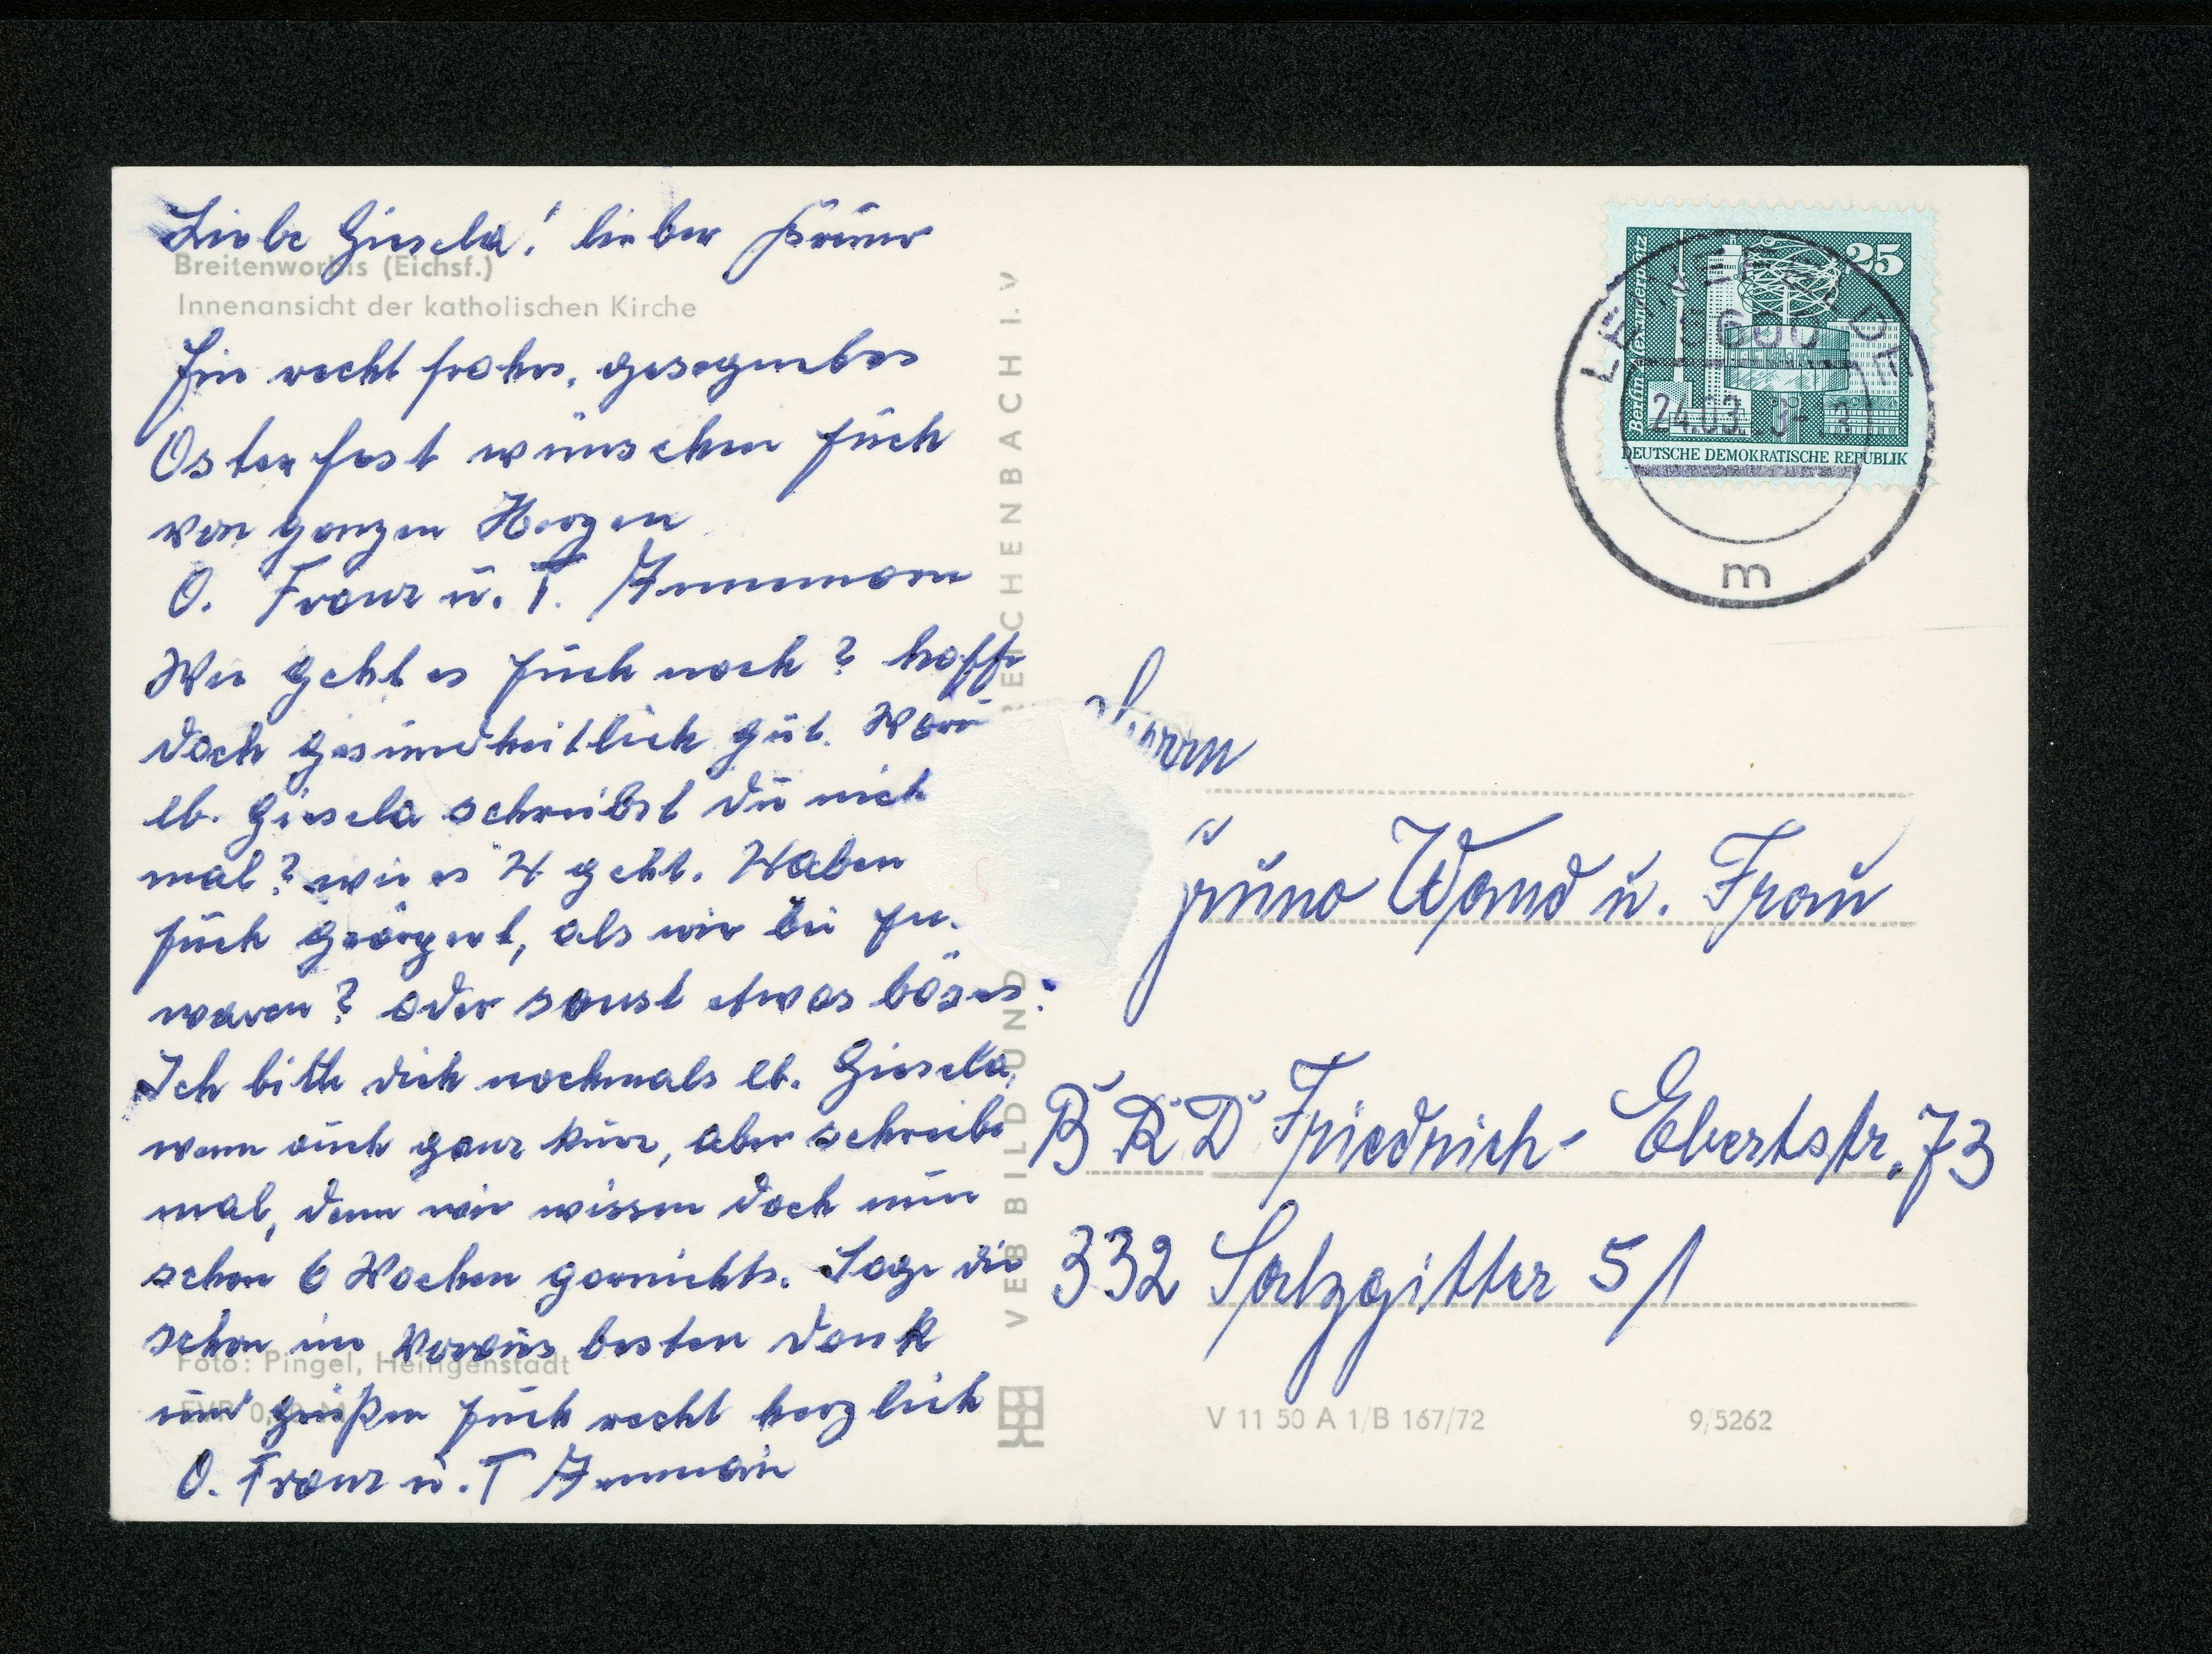 Liebe Giesela! lieber Bruno
Breitenworbis (Eichsf.)
Innenansicht der katholischen Kirche
Ein recht frohes, gesegnetes
Osterfest wünschen Euch
von ganzen Herzen
O. Franz u. T. Annemarie
Wie geht es Euch noch? hoffe
doch gesundheitlich gut.
lb. Giesela schreibst du nicht
mal? wie es geht. Haben
Euch geärgert, als wir bei
waren? oder sonst etwas böses?
Ich bitte dich nochmals lb. Giesela,
wenn auch ganz kurz, aber schreibe
mal, denn wir wissen doch nun
schon 6 Wochen garnichts. Sage dir
schon im Voraus besten Dank
Foto: Pingel, Heiligenstadt
und grüßen Euch recht herzlich
O. Franz u. T Annemarie
VEB BILD UND REICHENBACH I. V
25
Berlin-Alexanderplatz
DEUTSCHE DEMOKRATISCHE REPUBLIK
24.03.
m
Herrn
Bruno Wand u. Frau
BRD Friedrich-Ebertstr. 73
332 Salzgitter 51
V 11 50 A 1/B 167/72
9/5262